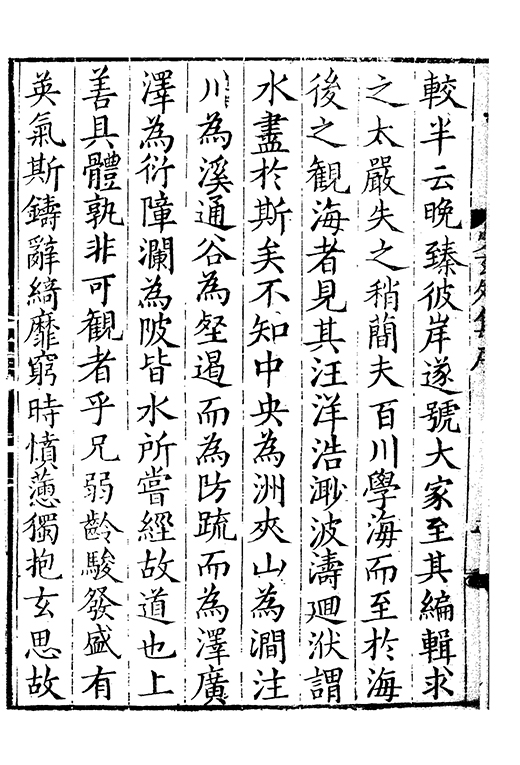 較半云晩臻彼岸遂號大家至其編輯求
之太嚴失之稍簡夫百川學海而至於海
後之観海者見其汪洋浩渺波濤廻洑謂
水盡於斯矣不知中央為洲夾山為澗注
川為溪通谷為壑遏而為防疏而為澤廣
澤為衍障瀾為陂皆水所嘗經故道也上
善具體孰非可観者乎兄弱齡駿發盛有
英氣斯鑄辭綺靡窮時憤懣獨抱玄思故